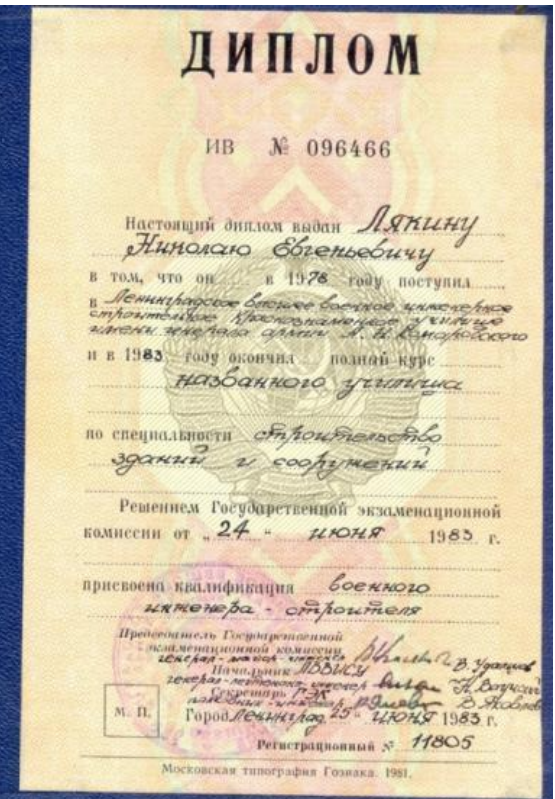 ДИПЛОМ
ИВ № 096466
Настоящий диплом выдан Лякину
Николаю Евгеньевичу
в том, что он в 1978 году поступил
в Ленинградское высшее военное инженерное
строительное Краснознаменное училище
имени генерала армии А. Н. Комаровского
и в 1983 году окончил полный курс
названного училища
по специальности строительство
зданий и сооружений
Решением Государственной экзаменационной
комиссии от „24" июня 1983 г.
присвоена квалификация военного
инженера - строителя
Председатель Государственной
экзаменационной комиссии
генерал-майор-инженер В. Удальцов
Начальник ЛВВИСУ
генерал-лейтенант-инженер
Секретарь ГЭК
полковник-инженер В. Яковлев
М. П.
Город Ленинград, 25" июня 1983 г.
Регистрационный № 11805
Московская типография Гознака. 1981.